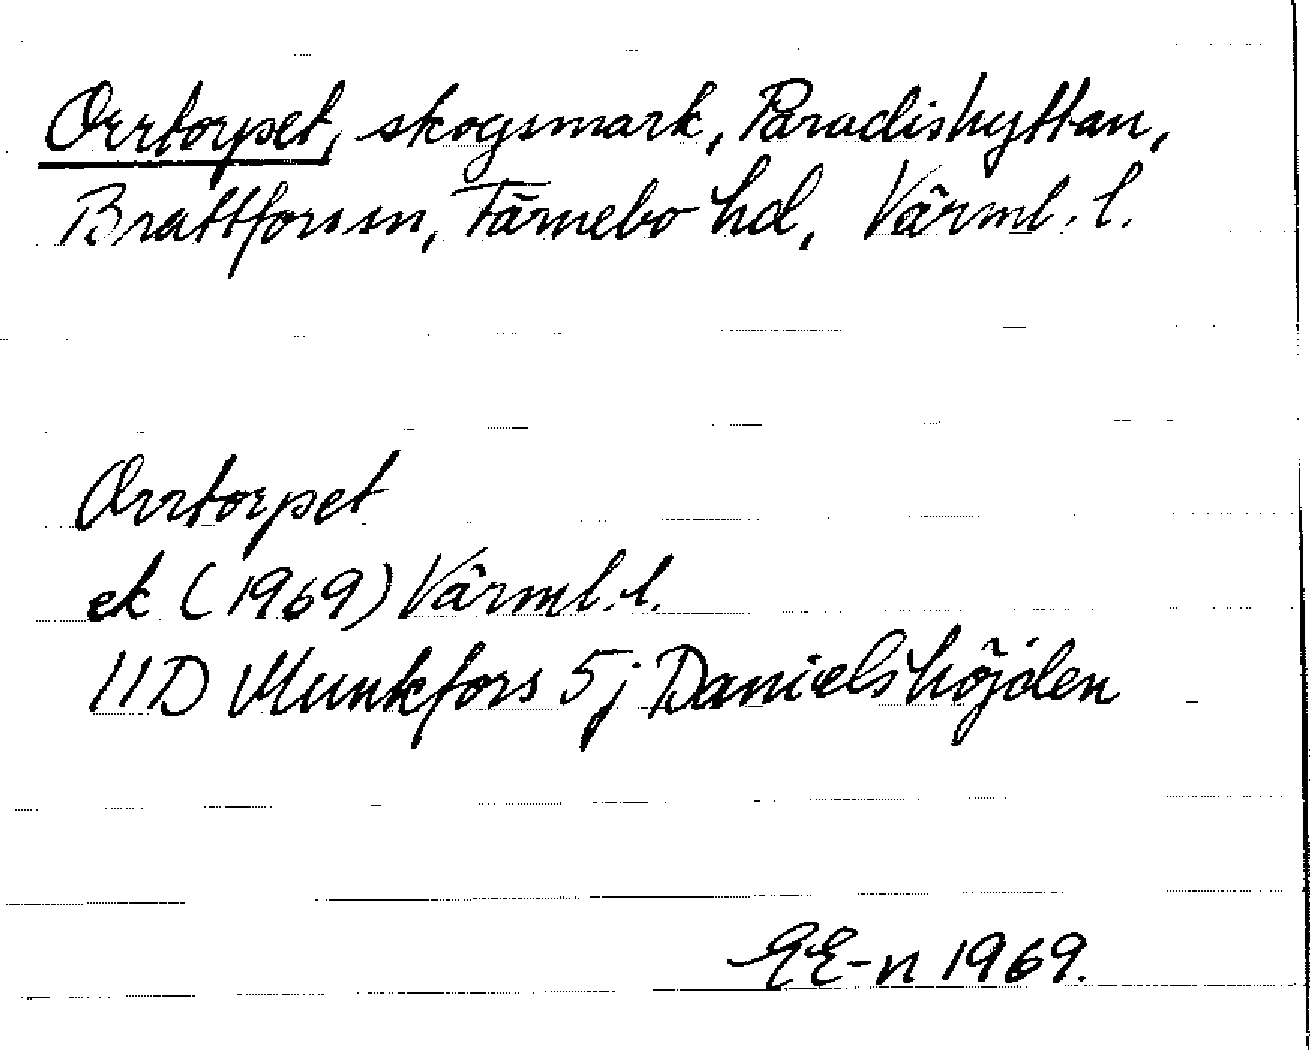 Orrtorpet, skogsmark, Paradishyttan,
Brattforsen, Färnebo hd, Värml. l.
Orrtorpet
ek (1969) Värml. l.
11D Munkfors 5j Danielshöjden
EE-n 1969.